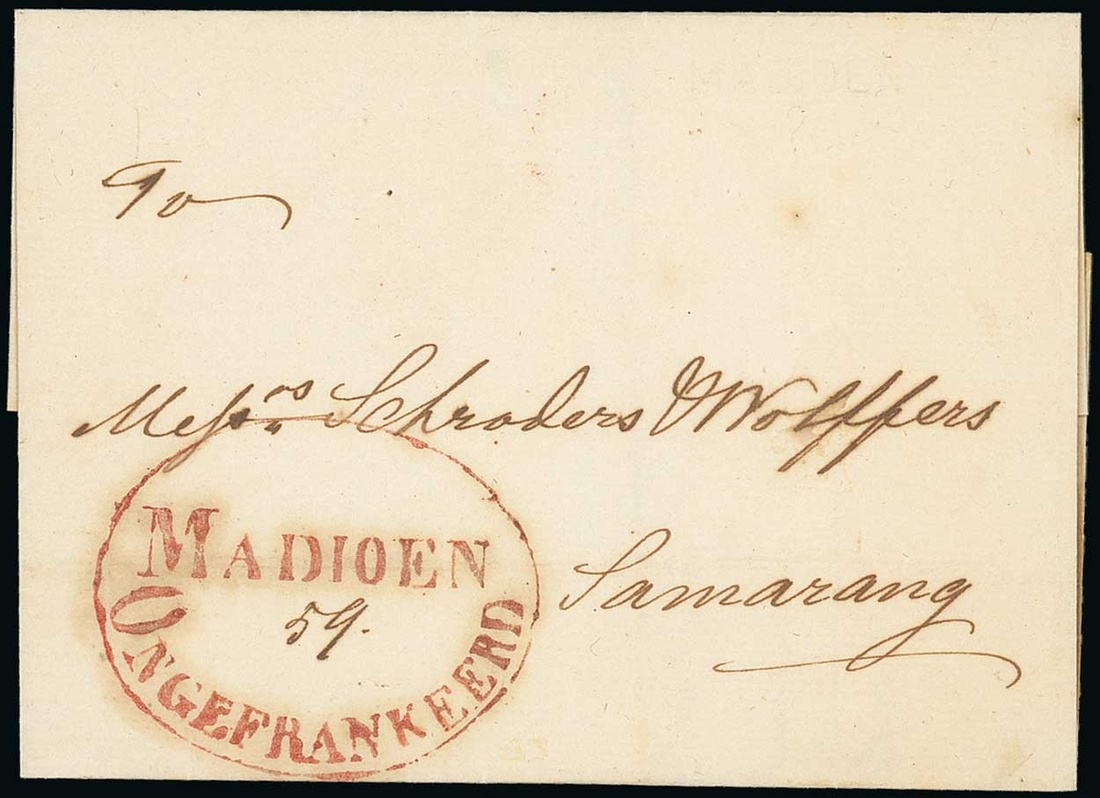 To
Messrs Schroders & Wolffers
MADIOEN
59.
ONGEFRANKEERD
Samarang